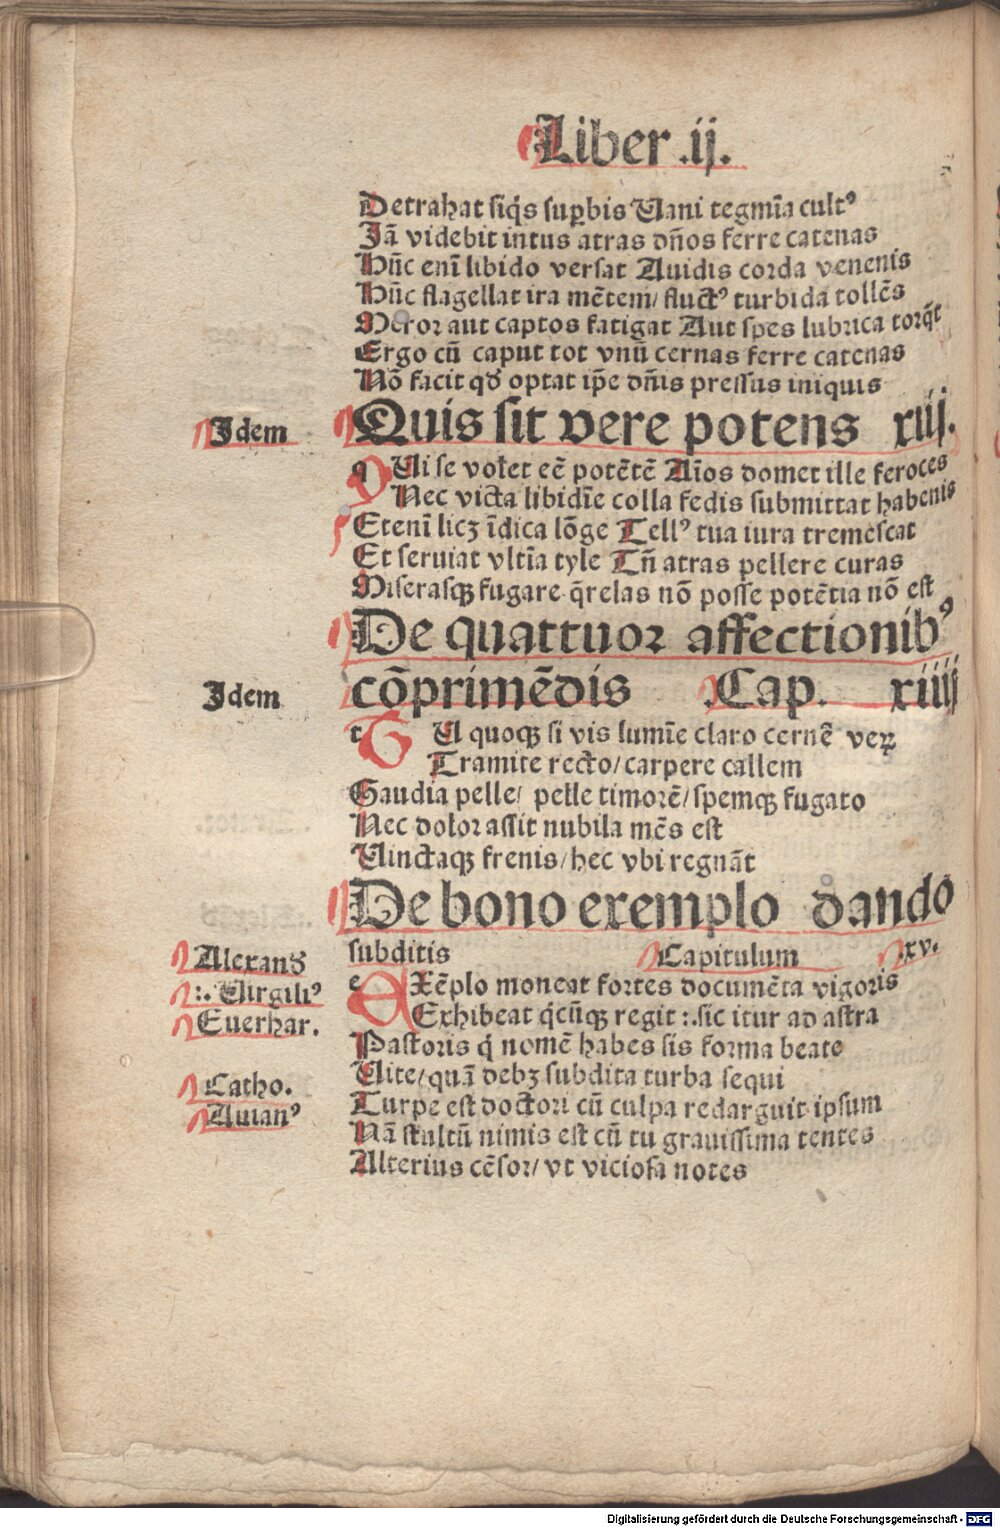 Liber .ij.
Detrahat siq̄s suꝑbis Uani tegmīa cultꝰ
Jā videbit intus atras dn̄os ferre catenas
Hūc enī libido versat Auidis corda venenis
Hūc flagellat ira mētem/ fluctꝰ turbida tollēs
Meror aut captos fatigat Aut spes lubrica torq̄t
Ergo cū caput tot vnū cernas ferre catenas
Nō facit qð optat ip̄e dn̄is pressus iniquis
Idem
Quis sit vere potens xiij.
qUi se volet eē potētē Aīos domet ille feroces
Nec victa libidīe colla fedis submittat habenis
Etenī licꝫ īdica lōge Tellꝰ tua iura tremescat
Et seruiat vltīa tyle Tn̄ atras pellere curas
Miserasqꝫ fugare q̄relas nō posse potētia nō est
De quattuor affectionibꝰ
Idem
cōprimēdis .Cap. xiiij
tU quoqꝫ si vis lumīe claro cernē veꝝ
Tramite recto/ carpere callem
Gaudia pelle/ pelle timorē/ spemqꝫ fugato
Nec dolor assit nubila mēs est
Uinctaqꝫ frenis/ hec vbi regnāt
De bono exemplo dando
subditis Capitulum xv.
Alexanð
:. Uirgiliꝰ
Euerhar.
Catho.
Auianꝰ
eXēplo moneat fortes documēta vigoris
Exhibeat q̇cūqꝫ regit :. sic itur ad astra
Pastoris q̇ nomē habes sis forma beate
Uite/ quā debꝫ subdita turba sequi
Turpe est doctori cū culpa redarguit ipsum
Nā stultū nimis est cū tu grauissima tentes
Alterius cēsor/ vt viciosa notes
Digitalisierung gefördert durch die Deutsche Forschungsgemeinschaft - DFG